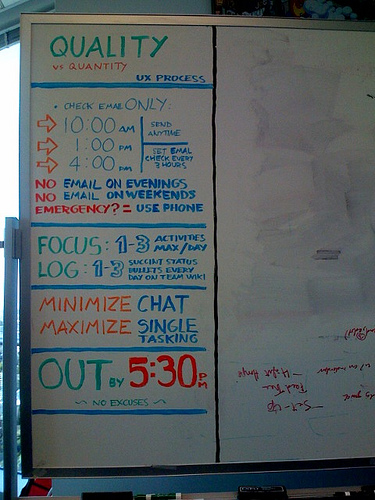 QUALITY
vs QUANTITY
UX PROCESS
• CHECK EMAIL ONLY:
10:00 AM
1:00 PM
4:00 PM
SEND
ANYTIME
SET EMAIL
CHECK EVERY
3 HOURS
NO EMAIL ON EVENINGS
NO EMAIL ON WEEKENDS
EMERGENCY? = USE PHONE
FOCUS: 1-3 ACTIVITIES
MAX/DAY
LOG: 1-3 SUCCINT STATUS
BULLETS EVERY
DAY ON TEAM WIKI
MINIMIZE CHAT
MAXIMIZE SINGLE
TASKING
OUT BY 5:30 PM
~ NO EXCUSES ~